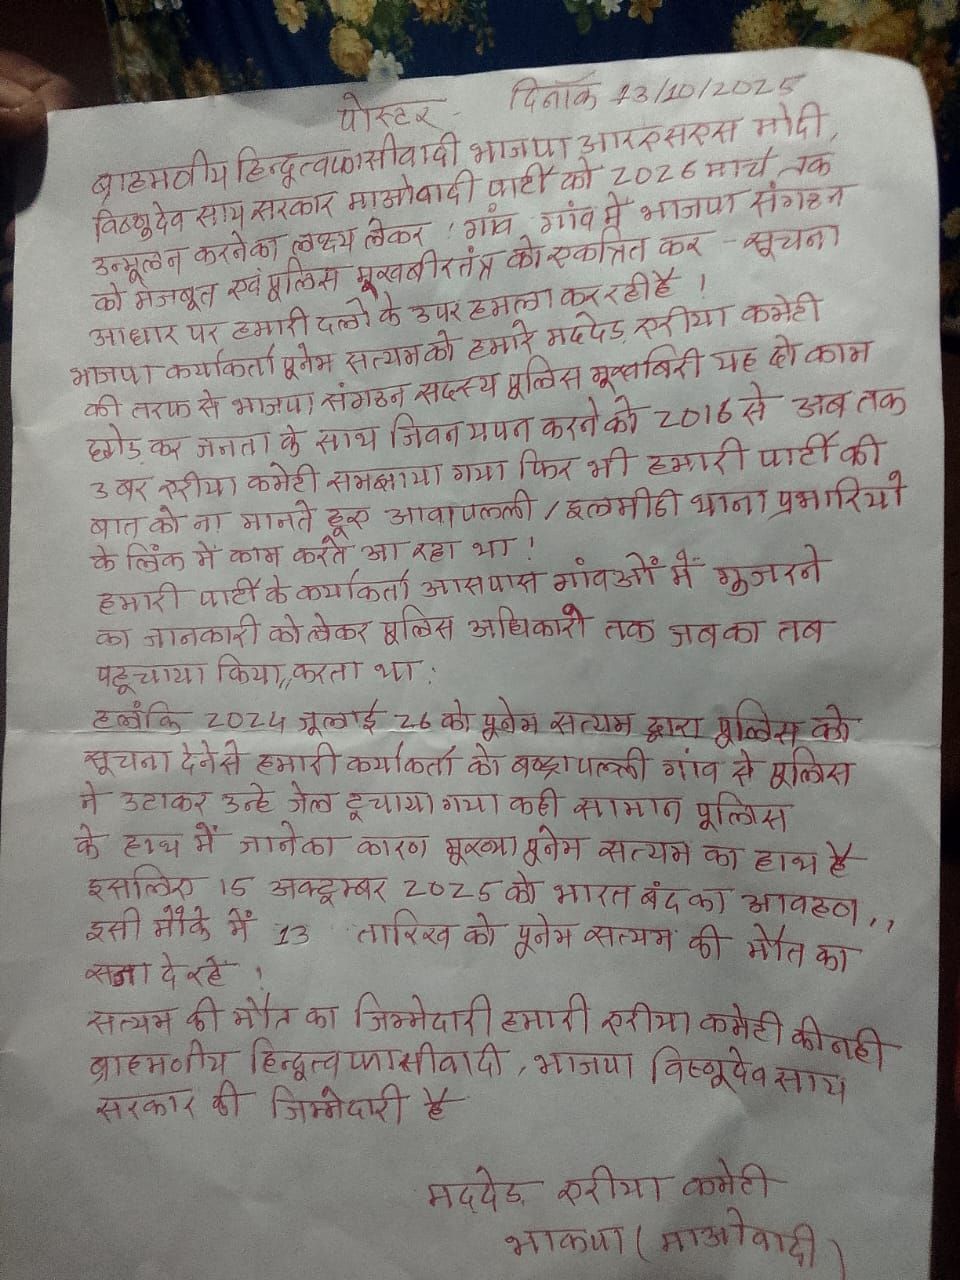 पोस्टर दिनाँक 13/10/2025
ब्राहमणीय हिन्दुत्वफासीवादी भाजपा आरएसएस मोदी,
विष्णुदेव साय सरकार माओवादी पार्टी को 2026 मार्च तक
उन्मूलन करनेका लक्ष्य लेकर ! गांव गांव में भाजपा संगठन
को मजबूत एवं पुलिस मूखबीरतंत्र को एकत्रित कर - सूचना
आधार पर हमारी दलो के उपर हमला कर रही है !
भाजपा कर्याकर्ता पूनेम सत्यम को हमारे मददेड़ एरीया कमेटी
की तरफ से भाजपा संगठन सदस्य पुलिस मूखबिरी यह दो काम
छोड़ कर जनता के साथ जिवन यपन करने को 2016 से अब तक
3 बर एरीया कमेटी समझाया गया फिर भी हमारी पार्टी की
बात को ना मानते हूए आवापल्ली / इलमीडी थाना प्रभारियो
के लिंक में काम करते आ रहा था !
हमारी पार्टी के कर्याकर्ता आसपास गांवओं में गुजरने
का जानकारी को लेकर पुलिस अधिकारी तक जबका तब
पहूचाया किया,,करता था.
हलाँकि 2024 जूलाई 26 को पूनेम सत्यम द्वारा पुलिस को
सूचना देनेसे हमारी कर्याकर्ता को गांव से पुलिस
ने उटाकर उन्हे जेल दूचाया गया कही सामान पूलिस
के हाथ में जानेका कारण मूख्या पूनेम सत्यम का हाथ है
इसलिए 15 अक्टूम्बर 2025 को भारत बंद का आवहन,,
इसी मौके में 13 तारिख को पूनेम सत्यम की मौत का
सजा दे रहें !
सत्यम की मौत का जिम्मेदारी हमारी एरीया कमेटी की नही
ब्राहमणीय हिन्दुत्व फासीवादी, भाजपा विष्णूदेव साय
सरकार की जिम्मेदारी है
मददेड़ एरीया कमेटी
भाकपा (माओवादी)